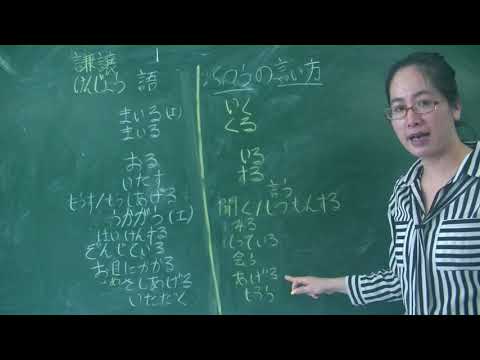 謙譲
けんじょう 語
まいる(エ)
まいる
おる
いたす
もうす/もうしあげる
うかがう(エ)
はいけんする
ぞんじている
お目にかかる
さしあげる
いただく
ふつうの言い方
いく
くる
いる
する
言う
聞く/しつもんする
みる
しっている
会う
あげる
もらう